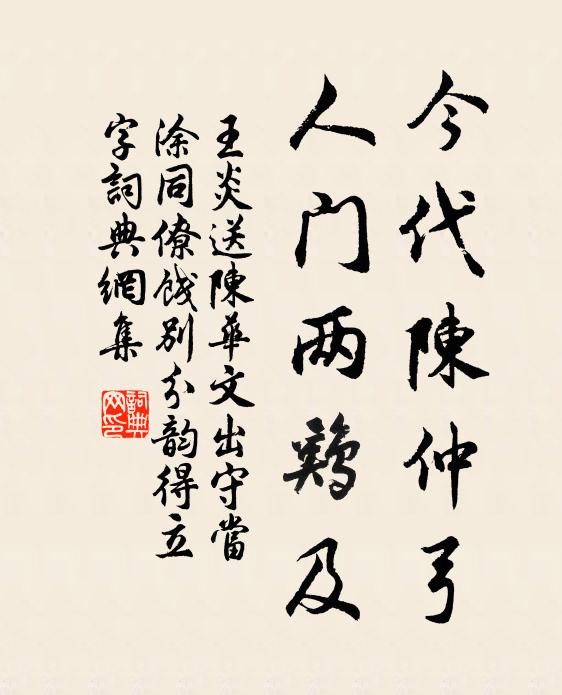 今代陳仲弓
人门两鷄及
王炎送陳華文出守當
涂同僚餞别分韵得立
字詞典網集
詞典
网印